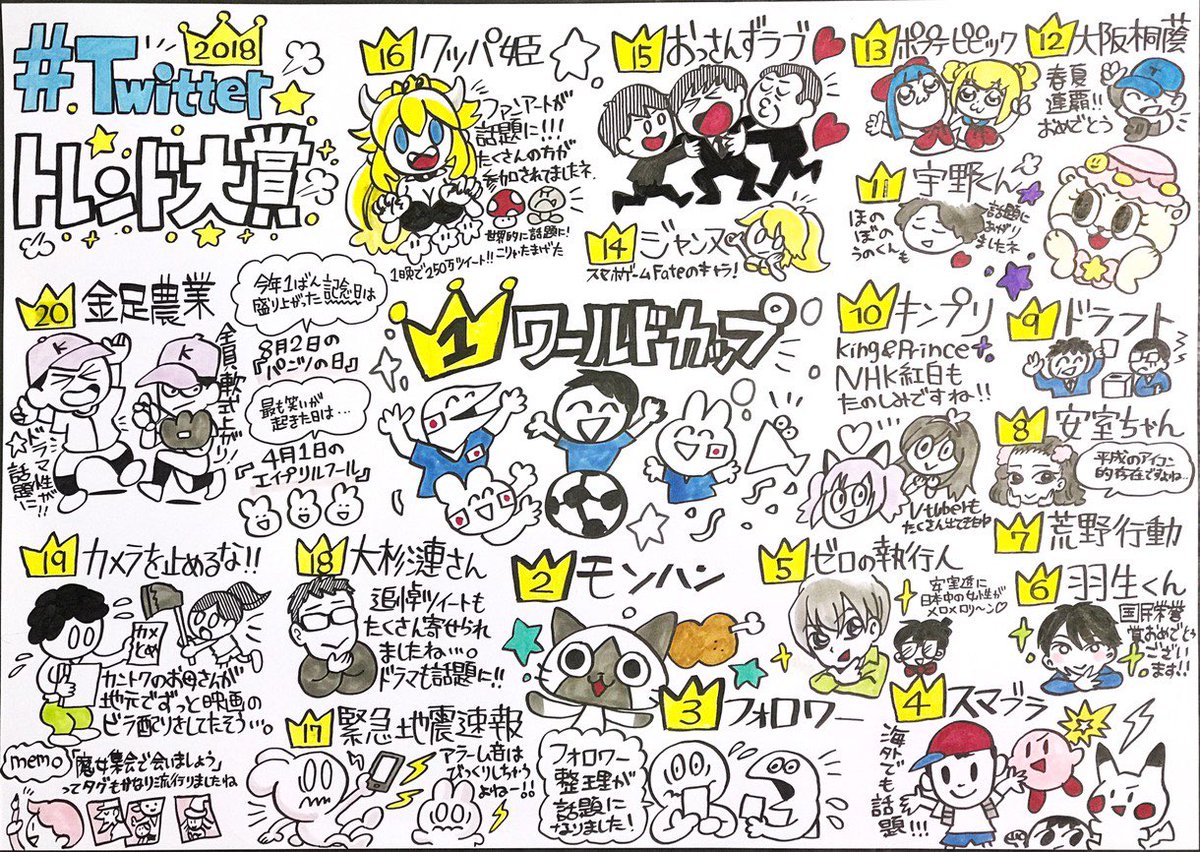 #Twitter
2018
トレンド大賞
16 クッパ姫
ファンアートが
話題に!!!
たくさんの方が
参加されてましたネ
世界的に話題に!
こりゃたまげた
1晩で250万ツイート!!
15 おっさんずラブ
14 ジャンヌ
スマホゲームFateのキャラ!
13 ポプテピピック
12 大阪桐蔭
春夏
連覇!!
おめでとう
11 宇野くん
ほの
ぼの
うのくんも
話題に
あがり
ましたネ
20 金足農業
全員軟式上がり!
ドラマ性が
話題に!!
今年1ばん
盛り上がった記念日は
8月2日の
『パンツの日』
最も笑いが
起きた日は…
4月1日の
『エイプリルフール』
1 ワールドカップ
10 キンプリ
King&Prince
NHK紅白も
たのしみですね!!
Vtuberも
たくさん出てきたね
9 ドラフト
8 安室ちゃん
平成のアイコン
的存在ですよね…
7 荒野行動
19 カメラを止めるな!!
カメ
とめ
カントクのお母さんが
地元でずっと映画の
ビラ配りをしてたそう…。
memo
「魔女集会で会いましょう」
ってタグもかなり流行りましたね
18 大杉漣さん
追悼ツイートも
たくさん寄せられ
ましたね…。
ドラマも話題に!!
17 緊急地震速報
アラーム音は
びっくりしちゃう
よねー!!
2 モンハン
3 フォロワー
フォロワー
整理が
話題に
なりました!
5 ゼロの執行人
安室透に
日本中の女性が
メロメロリ〜ン♡
6 羽生くん
国民栄誉
賞おめでとう
ござい
ます!!
4 スマブラ
海外でも話題!!!